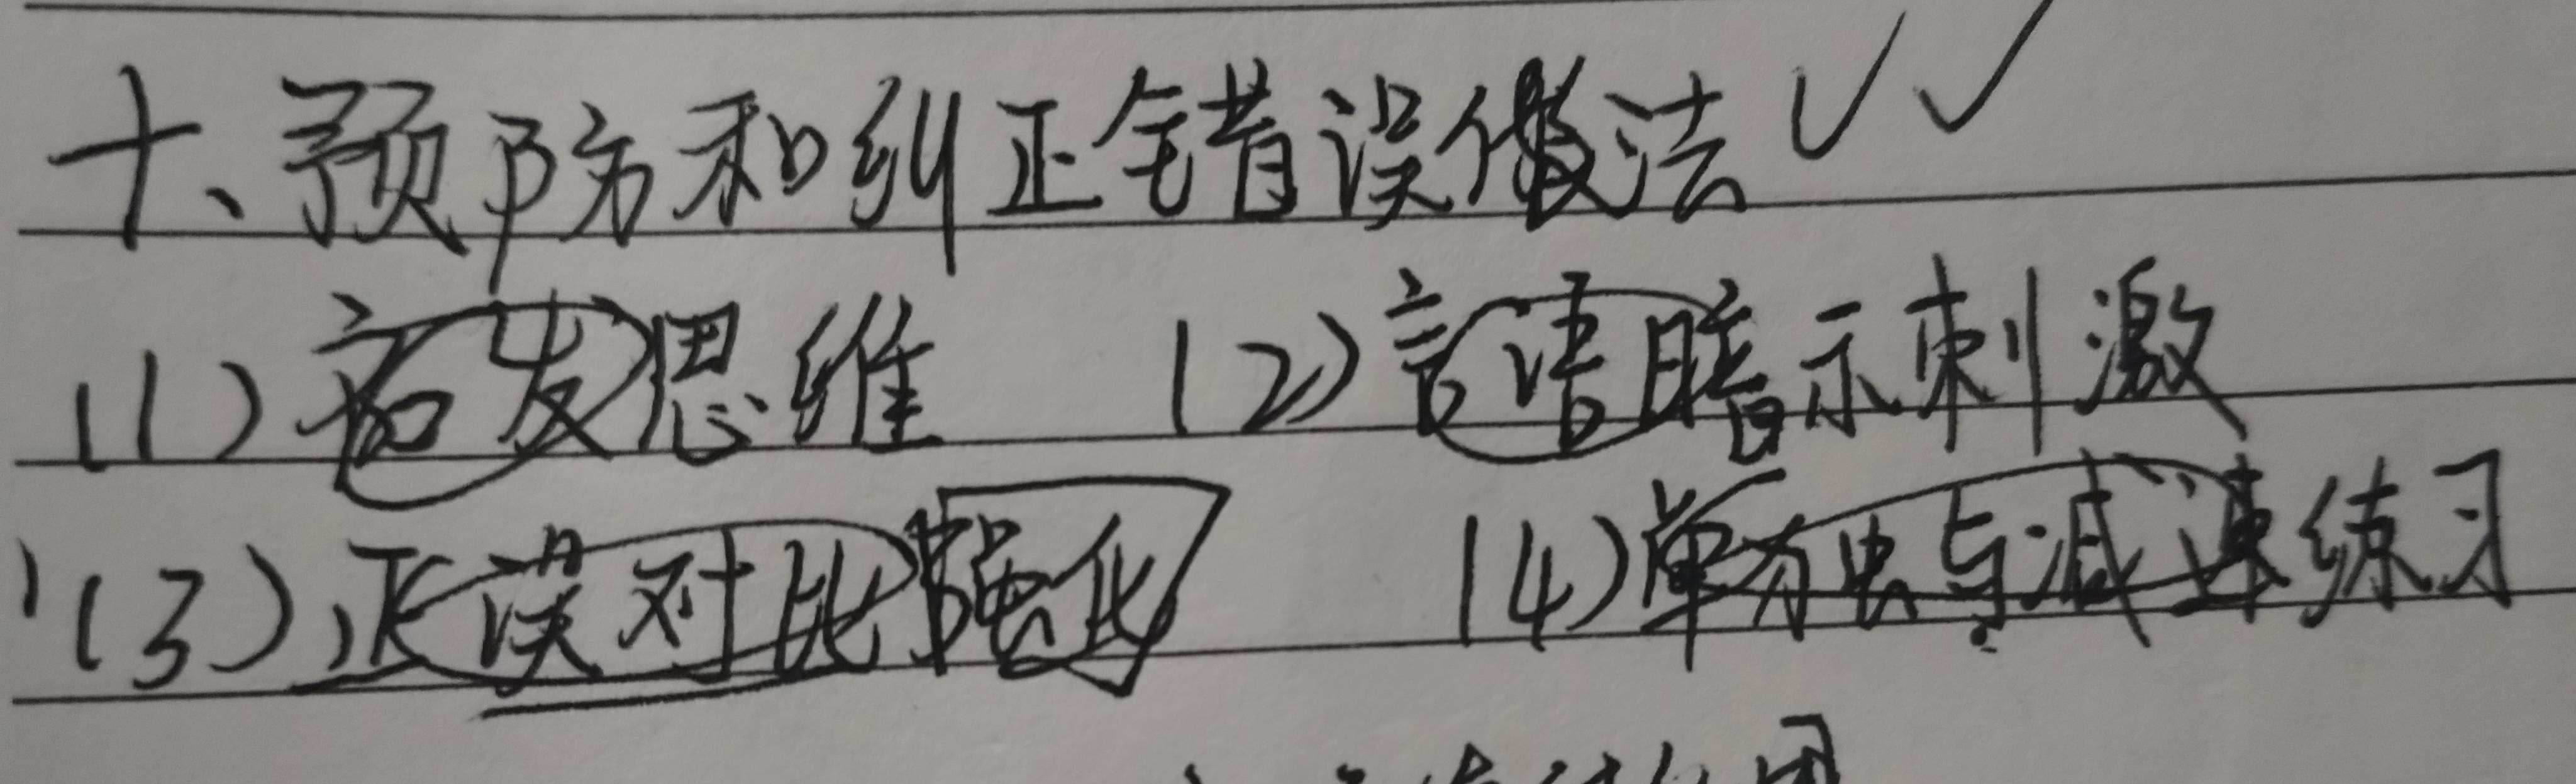 十、预防和纠正错误做法
(1)启发思维 (2)言语暗示刺激
(3)正误对比强化 (4)单方由与减速练习